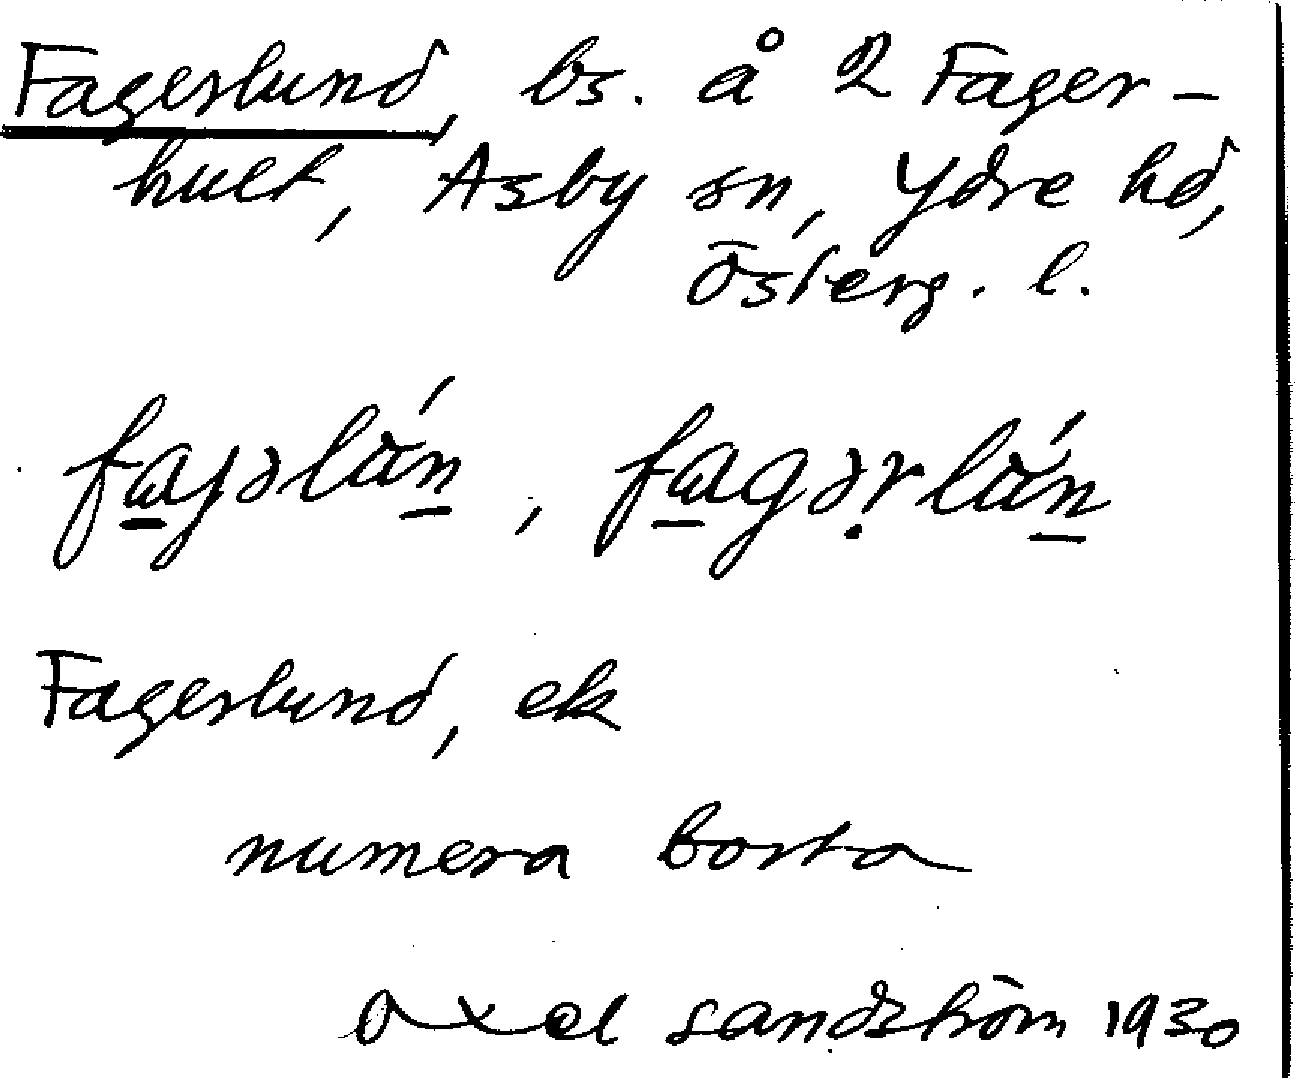 Fagerslund, bs. å 2 Fager-
hult, Asby sn, Ydre hd,
Österg. l.
Fagerslund, ek
numera borta
Axel Sandström 1930